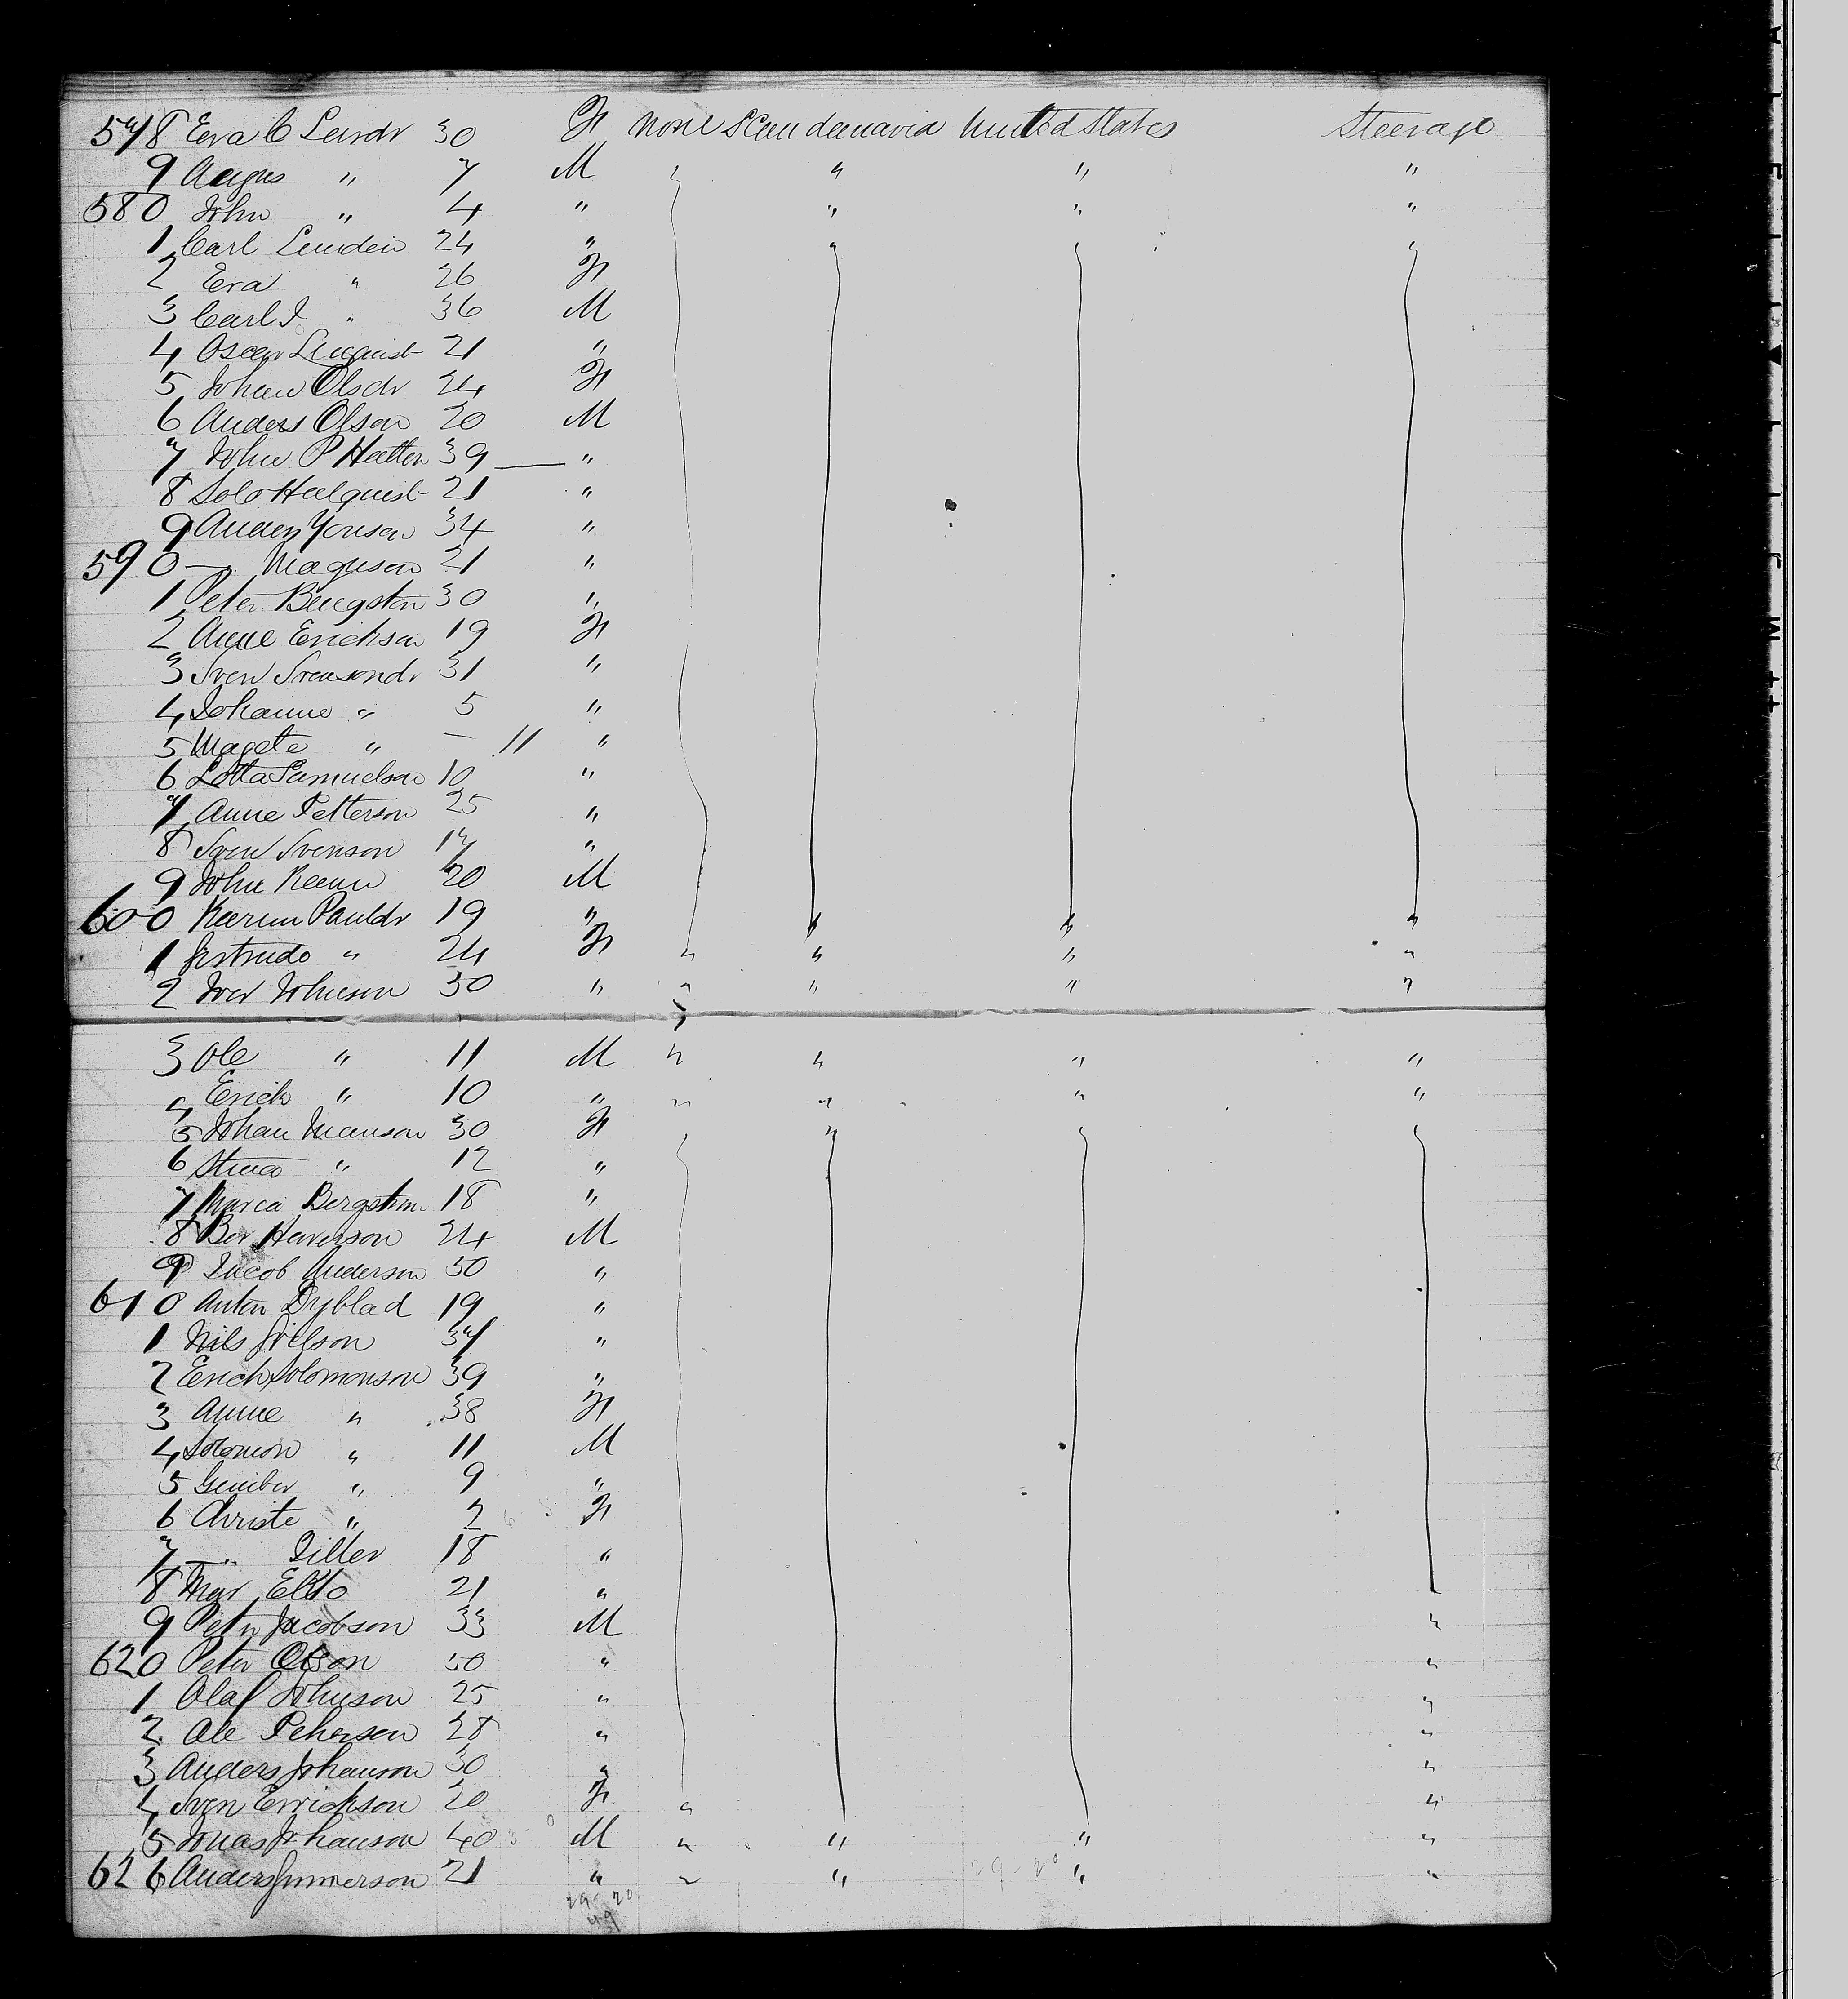 578 Eva C Lundr 30 F None Scandanavia United States Steerage
9 Augus " 7 M " " " "
580 John " 4 " " " "
1 Carl Lunden 24 " " " "
2 Eva " 26 F
3 Carl J " 36 M
4 Oscar Linquist 21 "
5 Johan Olsdr 24 F
6 Anders Olson 20 M
7 John P Hatten 39 — "
8 Solo Halquist 21 "
9 Anders Yonson 34 "
590 — Magnson 21 "
1 Peter Bengston 30 "
2 Anne Erickson 19 F
3 Sven Svensondr 31 "
4 Johanne " 5 "
5 Magete " — 11 "
6 Lotta Samuelson 10 "
7 Anne Petterson 25 "
8 Sven Svenson 17 "
9 John 20 M
600 Pauldr 19 " " " "
1 Gertrude " 24 F " " " "
2 Iver Johnson 30 " " " " "
3 Ole " 11 M " " " "
4 Erick " 10 " " " " "
5 Johan Manson 30 F " "
6 Stina " 12 "
7 Maria Bergstrom 18 "
8 Ber Haverson 24 M
9 Jacob Anderson 50 "
610 Anton Dyblad 19 "
1 Nils 37 "
2 Erick Solomonson 39 "
3 Anne " 38 F
4 Solomon " 11 M
5 " 9 "
6 Christe " 2 F
7 " 18 "
8 Mar 21 " "
9 Peter Jacobson 33 M "
620 Peter Olson 50 " "
1 Olaf Johnson 25 " "
2 Ole Peterson 28 " "
3 Anders Johanson 30 " "
4 Sven Errickson 20 F " "
5 Jonas Johanson 40 M " " " "
626 Anders Gunnerson 21 " " " " "
29-20
29-20
49